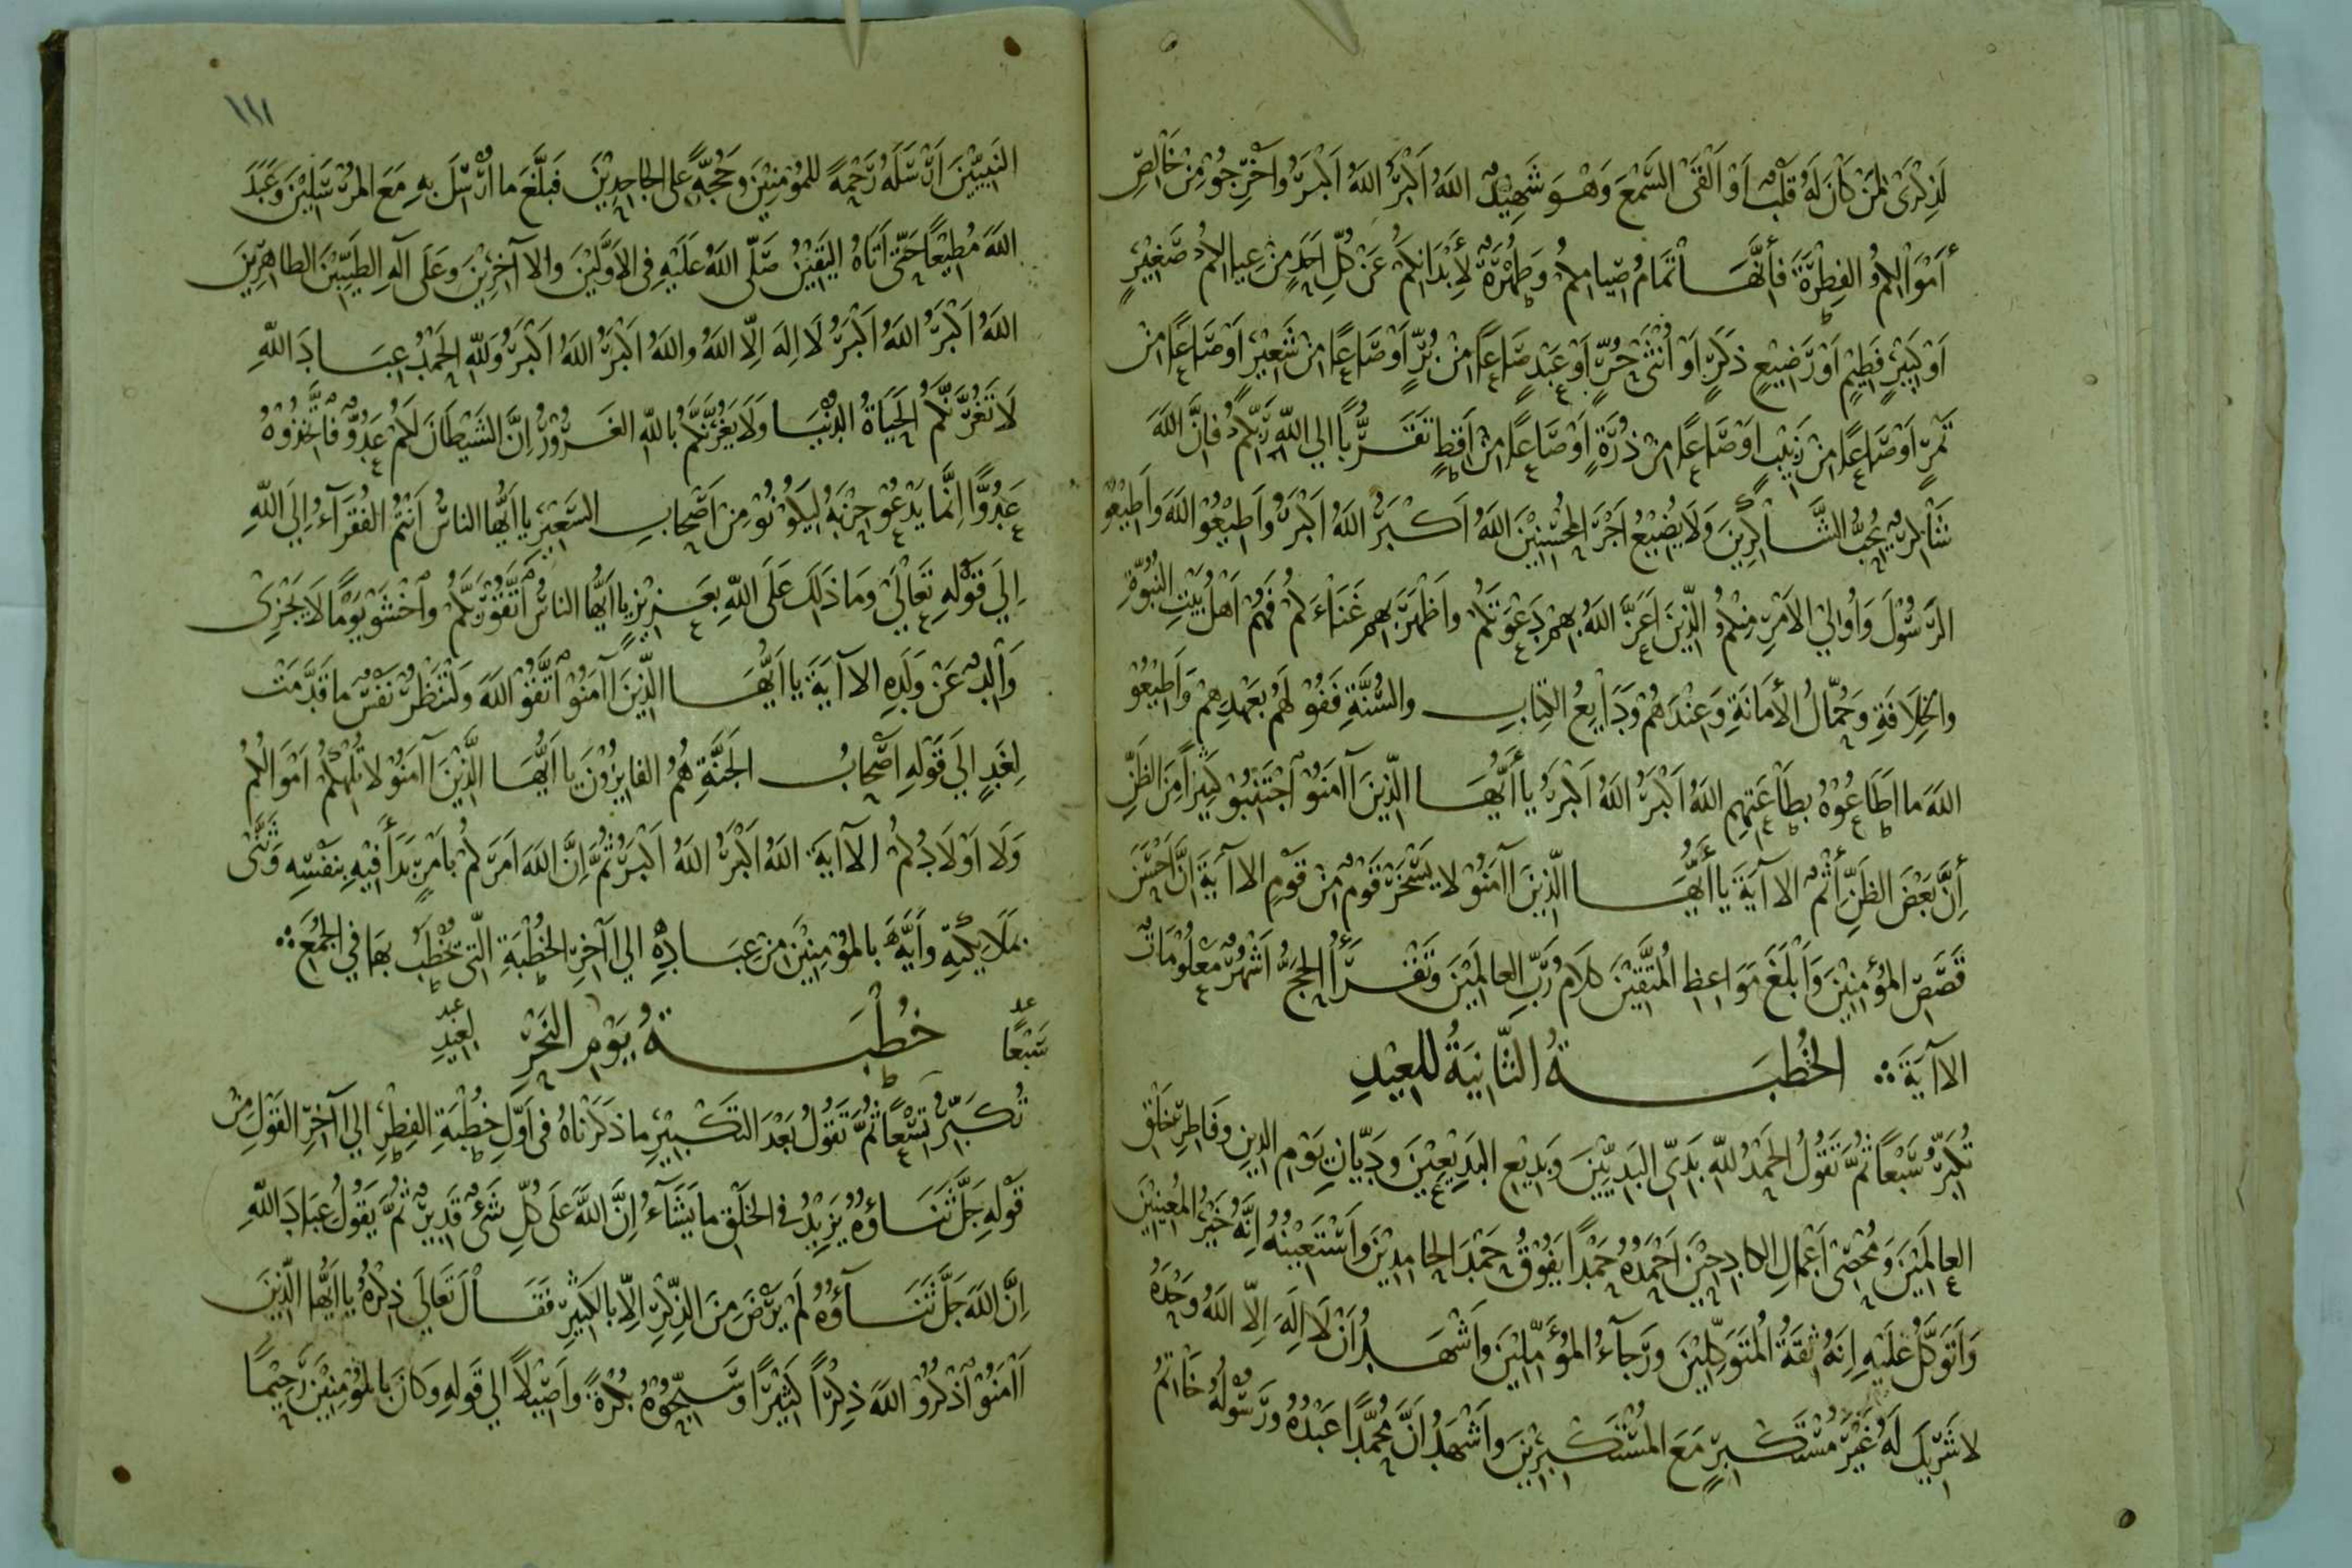 لَذِكْرَىٰ لِمَنْ كَانَ لَهُ قَلْبٌ اَوْ اَلْقَىٰ السَّمْعَ وَهْوَ شَهِيْدٌ اللهُ اَكْبَرُ اللهُ اَكْبَرُ وَاَخْرِجُوْ مِنْ خَالِصِ
أَمْوَالِكُمُ الفِطْرَةَ فَأِنَّهَا تَمَامُ صِيامِكُمْ وَطُهْرَةٌ لِأَبْدَانِكُمْ عَنْ كُلِّ اَحَدٍ مِنْ عِيالِكُمْ صَغِيْرٍ
اَوْ كَبِيْرٍ فَطِيْمٍ اَوْ رَضِيْعٍ ذَكَرٍ اَوْ اُنْثَىٰ حُرٍّ اَوْ عَبْدٍ صَاعًا مِنْ بُرٍّ اَوْ صَاعًا مِنْ شَعِيْرٍ اَوْ صَاعًا مِنْ
تَمْرٍ اَوْ صَاعًا مِنْ زَبِيْبٍ اَوْ صَاعًا مِنْ ذُرَةٍ اَوْ صَاعًا مِنْ اَقِطٍ تَقَرُّبًا الي اللهِ رَبِّكُمْ فَاِنَّ اللهَ
شَاْكِرٌ يُحِبُّ الشَّاْكِرِيْنَ وَلَا يُضِيْعُ اَجْرَ المُحْسِنِيْنَ اللهُ اَكْبَرُ اللهُ اَكْبَرُ وَاَطِيْعُوْ اللهَ وَاَطِيْعُوْ
الرَّسُوْلَ وَاُوْلِيْ الاَمْرِ مِنْكُمُ الَّذِيْنَ اَعَزَّ اللهُ بِهِمْ دَعْوَتَكُمْ وَاَظْهَرَ بِهِمْ غَنَاءَكُمْ فَهُمْ اَهْلُ بَيْتِ النُّبُوَّةِ
وَالخِلَافَةِ وَحُمَّالُ الأَمَانَةِ وَعِنْدَهُمْ وَدَايِعُ الكِتَابِ والسُّنَّةِ فَفُوْ لَهُمْ بِعَهْدِهِمْ وَاَطِيْعُوْ
اللهَ ما اَطَاعُوْهُ بِطَاْعَتِهِمِ اللهُ اَكْبَرُ اللهُ اَكْبَرُ يا أَيُّهَا الَّذِيْنَ اَامَنُوْ اَجْتَنِبُوْ كَثِيْرًا مِنَ الظَّنِّ
أِنَّ بَعْضَ الظَّنِّ أِثْمٌ الاآيَةَ يا أَيُّهَا الَّذِيْنَ اَامَنُوْ لا يَسْخَرْ قَوْمٌ مِنْ قَوْمٍ الاآيَةَ اِنَّ اَحْسَنَ
قَصَصِ المُؤْمِنِيْنَ وَاَبْلَغَ مَوَاعِظِ المُتَّقِيْنَ كَلَامُ رَبِّ العالَمِيْنَ وَتَقْرَأُ الحَجُّ اَشْهُرٌ مَعْلُوْمَاتٌ
الاآيَةَ ؞ الخُطْبَةُ الثَّانِيَةُ للعِيْدِ
تُكَبِّرُ سَبْعًا ثُمَّ تَقُوْلُ الحَمْدُ للهِ بَدِيِّ البَدِيِّيْنَ وَبَدِيْعِ البَدِيْعِيْنَ وَدَيَّانِ يَوْمِ الدِيْنِ وَفَاطِرِ خَلْقِ
العالَمِيْنَ وَمُحْصِيْ اَعْمَالِ الكادِحِيْنَ اَحْمَدُهُ حَمْدًا يَفُوْقُ حَمْدَ الحامِدِيْنَ وَاَسْتَعِيْنُهُ اِنَّهُ خَيْرُ المُعِيْنِيْنَ
وَاَتَوَكَّلُ عَلَيْهِ اِنَّهُ ثِقَةُ المُتَوَكِّلِيْنَ وَرَجَآءُ المُؤَمِّلِيْنَ وَاَشْهَدُ اَنْ لَا اِلَهَ اِلَّا اللهُ وَحْدَهُ
لا شَرِيْكَ لَهُ غَيْرَ مُسْتَكْبِرٍ مَعَ المُسْتَكْبِرِيْنَ وَاَشْهَدُ اَنَّ مُحَمَّدًا عَبْدُهُ وَرَسُوْلُهُ خَاتَمُ
١١١
النَبِيِّيْنَ اَرْسَلَهُ رَحْمَةً للمُؤْمِنِيْنَ وَحُجَّةً عَلى الجاحِدِيْنَ فَبَلَّغَ ما اُرْسِلَ بِهِ مَعَ المُرْسَلِيْنَ وَعَبَدَ
اللهَ مُطِيْعًا حَتَّى اَتَاهُ اليَقِيْنُ صَلَّى اللهُ عَلَيْهِ فِي الاَوَّلِيْنَ وَالاآخِرِيْنَ وَعَلَى آلِهِ الطَّيِّبِيْنَ الطاهِرِيْنَ
اللهُ اَكْبَرُ اللهُ اَكْبَرُ لَا اِلَهَ اِلَّا اللهُ وَاللهُ اَكْبَرُ اللهُ اَكْبَرُ وَللهِ الحَمْدُ عِبَادَ اللهِ
لَا تَغُرَّنَّكُمُ الحَيَاةُ الدُنْيَا وَلَا يَغُرَّنَّكُمْ بِاللهِ الغَرُوْرُ اِنَّ الشَيْطَانَ لَكُمْ عَدُوٌّ فَاتَّخِذُوْهُ
عَدُوًّا اِنَّمَا يَدْعُوْ حِزْبَهُ لِيَكُوْنُوْ مِنْ اَصْحَابِ السَّعِيْرِ يا اَيُّها الناسُ اَنْتُمُ الفُقَرَآءُ اِلَى اللهِ
اِلَي قَوْلِهِ تَعَالَىٰ وَمَا ذَلَكَ عَلَى اللهِ بِعَزِيْزٍ يا اَيُّها الناسُ اَتَّقُوْ رَبَّكُمْ وَاَخْشَوْ يَوْمًا لَا يَجْزِيْ
وَالِدٌ عَنْ وَلَدِهِ الاآيَةَ يا اَيُّهَا الَّذِيْنَ اَامَنُوْ اَتَّقُوْ اللهَ وَلْتَنْظُرْ نَفْسٌ ما قَدَّمَتْ
لِغَدٍ اِلَي قَوْلِهِ اَصْحَابُ الجَنَّةِ هُمُ الفايِزُوْنَ يا اَيُّهَا الَّذِيْنَ اَامَنُوْ لا تُلْهِكُمْ اَمْوَالُكُمْ
وَلَا اَوْلَادُكُمْ الاآيَةَ اللهُ اَكْبَرُ اللهُ اَكْبَرُ ثُمَّ اِنَّ اللهَ اَمَرَكُمْ بِاَمْرٍ بَدَأَ فِيْهِ بِنَفْسِهِ وَثَنَّى
بِمَلَايِكَتِهِ وَاَيَّهَ بِالمُؤْمِنِيْنَ مِنْ عِبَادِهِ الي اَاخِرِ الخُطْبَةِ الَّتِيْ تُخْطَبُ بِهَا فِي الجُمَعِ ؞
سَبْعًا خُطْبَةُ يَوْمِ النَحْرِ لِعِيْدِ
تُكَبِّرُ تِسْعًا ثُمَّ تَقُوْلُ بَعْدَ التَكْبِيْرِ ما ذَكَرْنَاهُ فِي اَوَّلِ خُطْبَةِ الفِطْرِ الي اَاخِرِ القَوْلِ مِنْ
قَوْلِهِ جَلَّ ثَنَاؤُهُ يَزِيْدُ فِي الخَلْقِ ما يَشَآءُ اِنَّ اللهَ عَلَى كُلِّ شَيْءٍ قَدِيْرٌ ثُمَّ يَقُوْلُ عِبَادَ اللهِ
اِنَّ اللهَ جَلَّ ثَنَآؤُهُ لَمْ يَرْضَ مِنَ الذِكْرِ اِلَّا بِالكَثِيْرِ فَقَالَ تَعَالَى ذِكْرُهُ يا اَيُّهَا الَّذِيْنَ
اَامَنُوْ اَذْكُرُوْ اللهَ ذِكْرًا كَثِيْرًا وَسَبِّحُوْهُ بُكْرَةً وَاَصِيْلًا الي قَوْلِهِ وَكَانَ بِالمُؤْمِنِيْنَ رَحِيْمًا